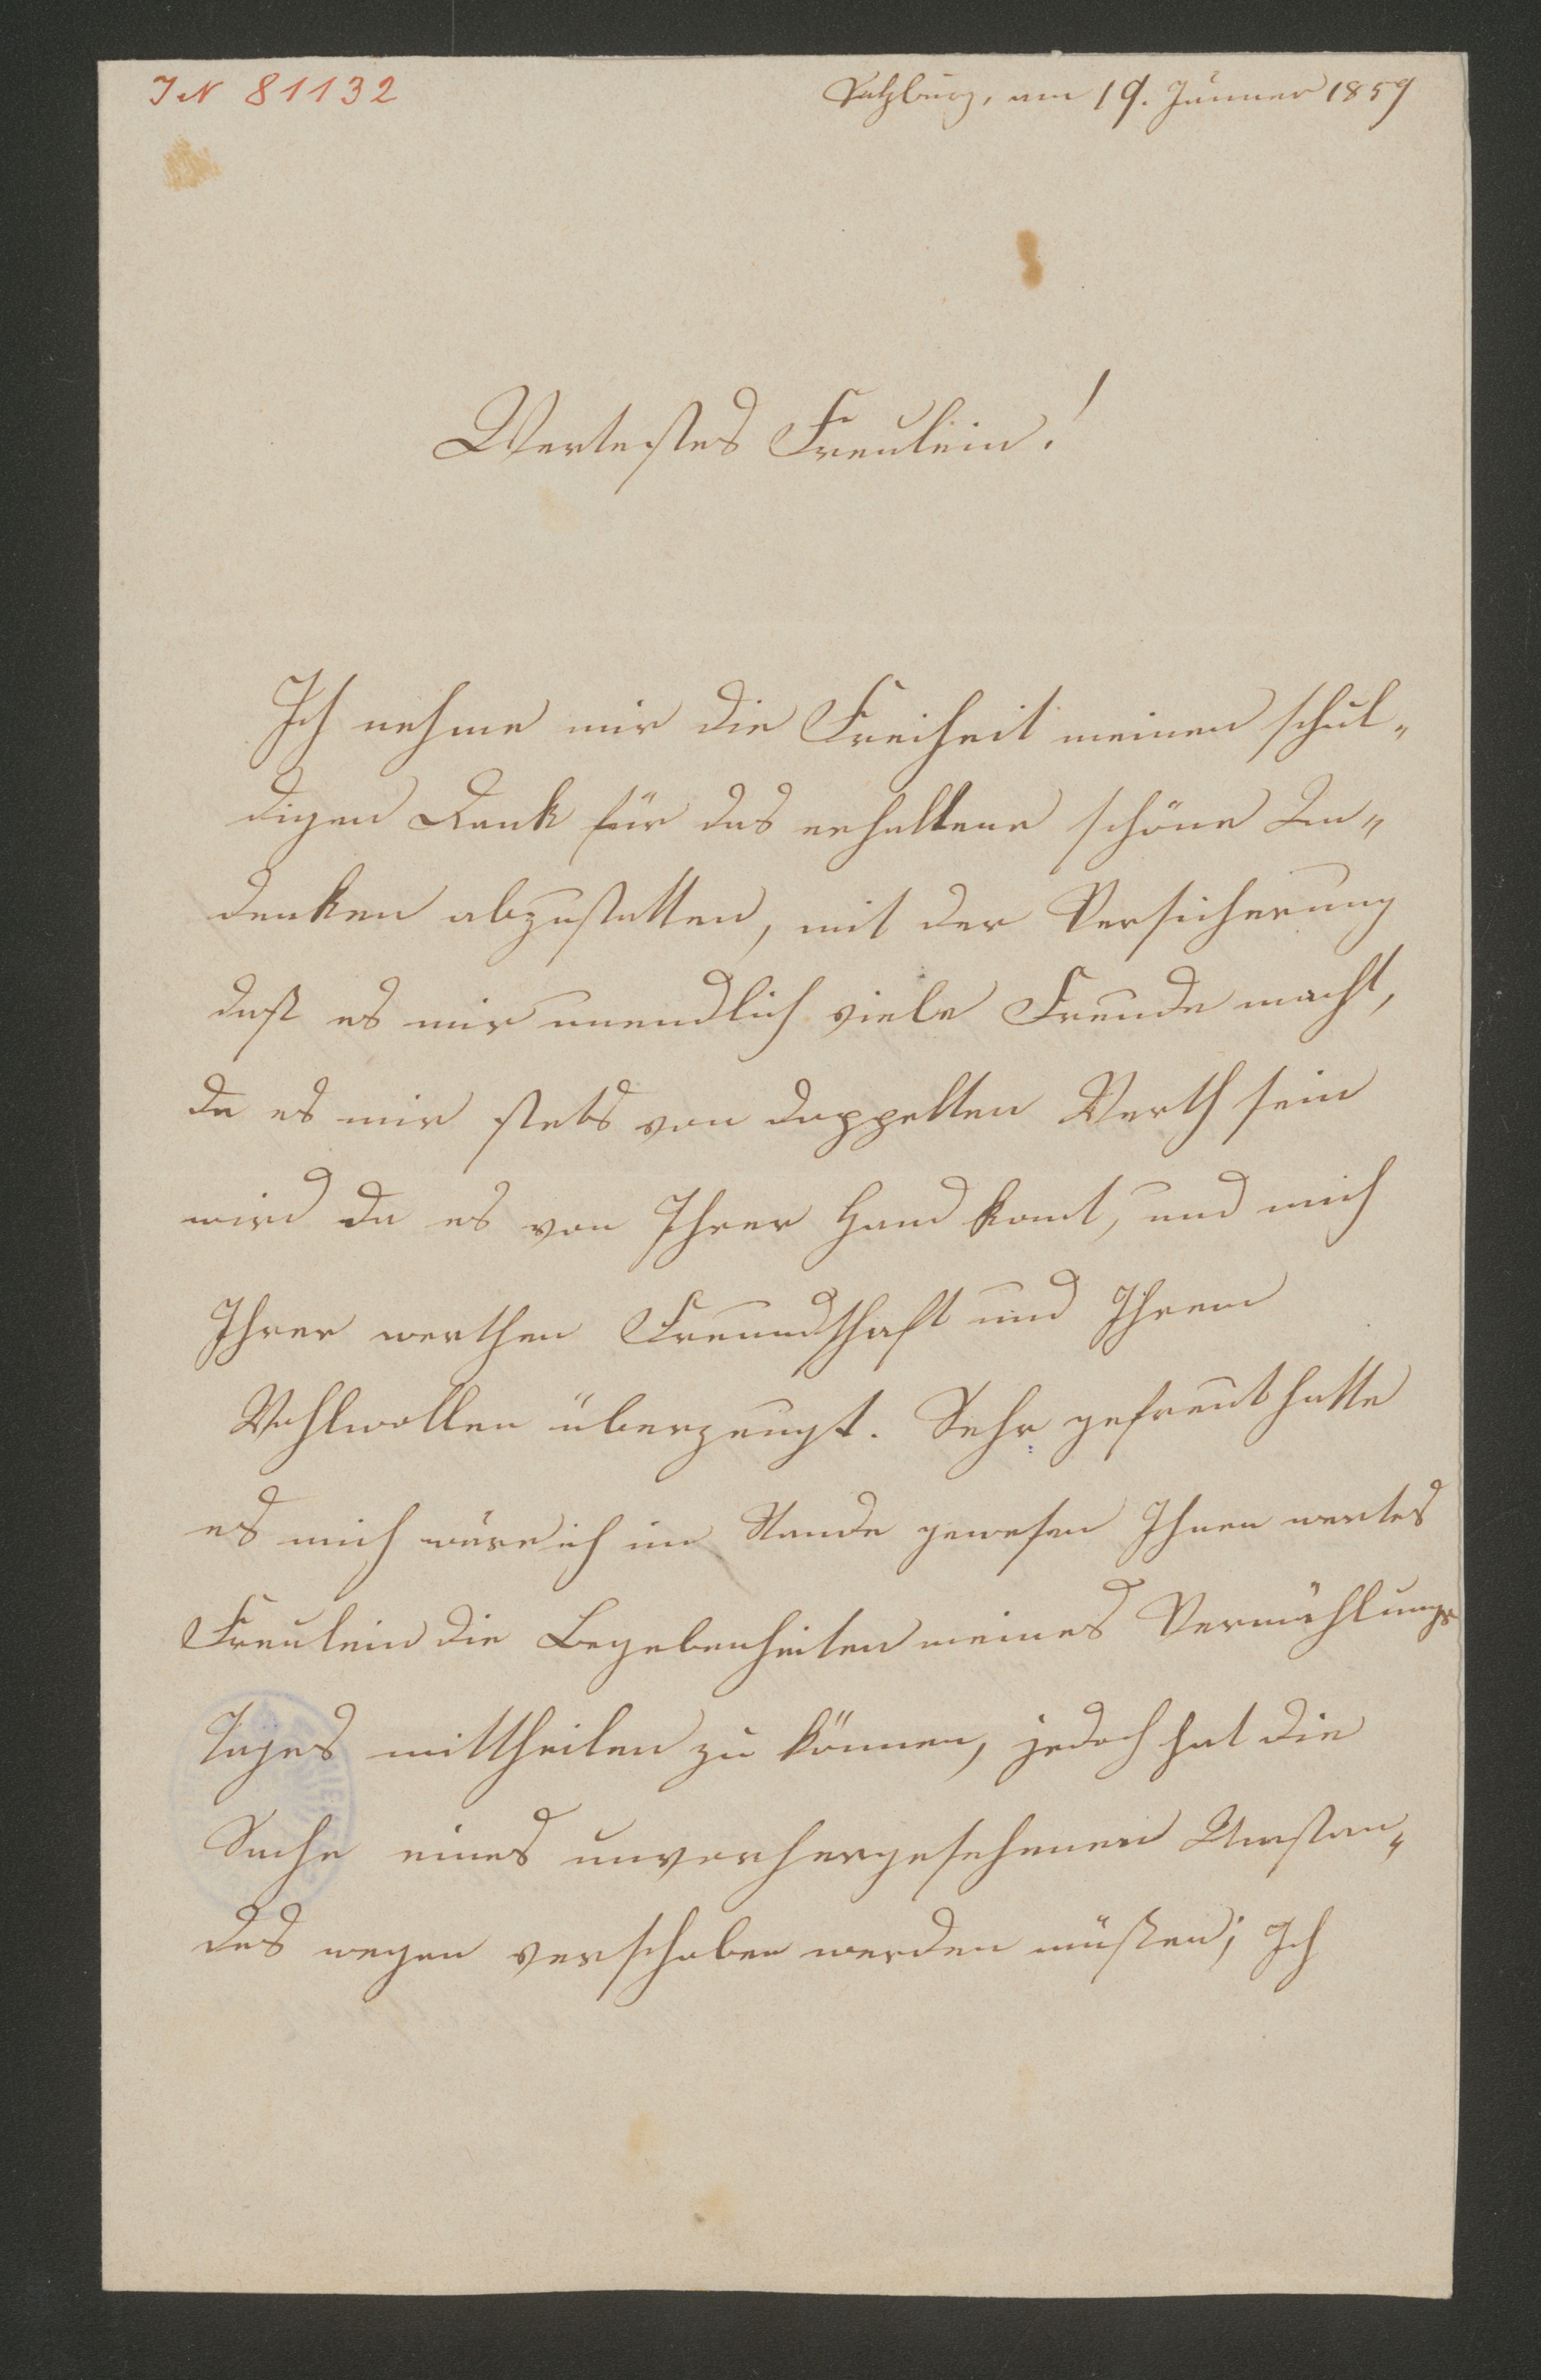 IN 81132
Salzburg, am 19. Jänner 1859
Wertestes Freulein!
Ich nehme mir die Freiheit meinen schul„
digen Dank für das erhaltene schöne An„
denken abzustatten, mit der Versicherung
daß es mir unendlich viele Freude macht,
da es mir stets von doppelten Werth sein
wird da es von Ihrer Hand komt, und mich
Ihrer werthen Freundschaft und Ihrem
Wohlwollen überzeugt. Sehr gefreut hatte
es mich wäre ich im Stande gewesen Ihnen wertes
Freulein die Begebenheiten meines Vermählungs
Tages mittheilen zu können, jedoch hat die
Sache eines unvorhergesehenen Umstan„
des wegen verschoben werden müßen; Ich